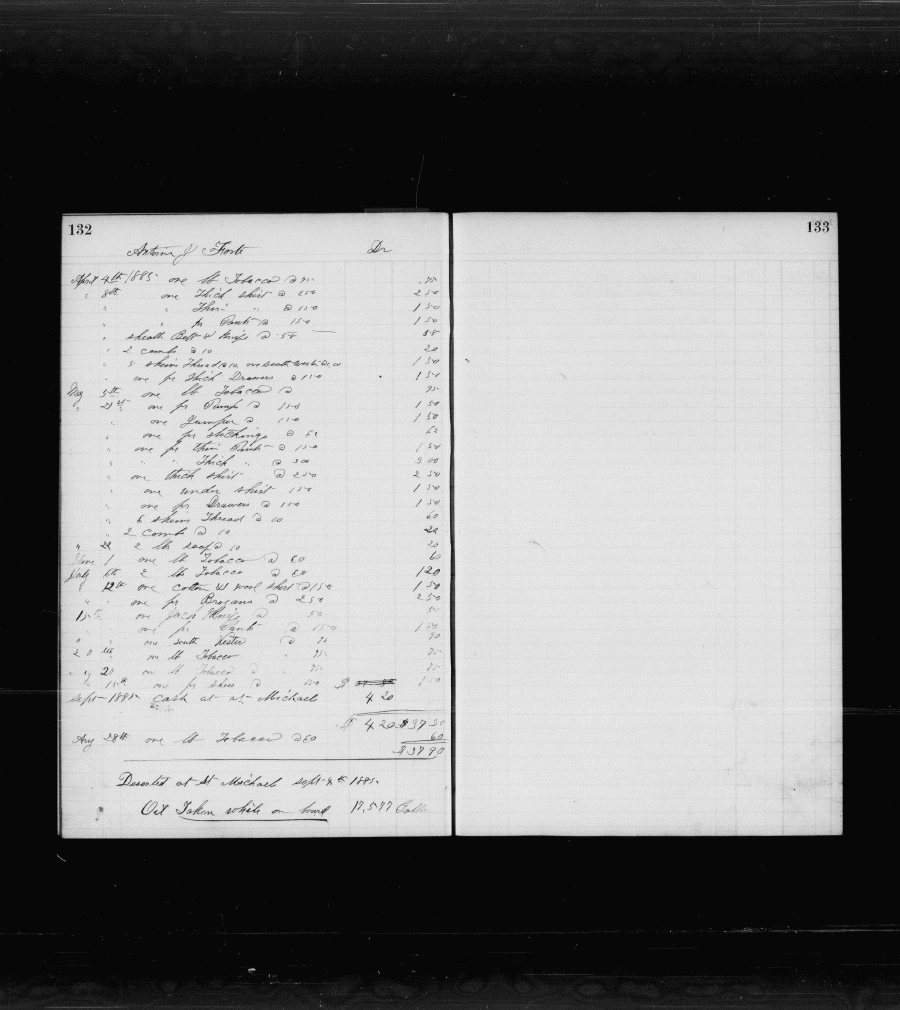 132
133
Antoine J Forte Dr
April 4th 1885 one lb Tobacco @ 75 .75
" 8th one Thick shirt @ 250 2 50
" " Thin " @ 150 1 50
" " pr Pants @ 150 1 50
" sheath Belt & Knife @ 58 58
" 2 combs @ 10 20
" 5 skeins Thread @ 10, one south wester @ 1,00 1 50
" one pr Thick Drawers @ 150 1 50
May 5th one lb Tobacco @ 75
" 21st one pr Pumps @ 150 1 50
" one Jumper @ 150 1 50
" one pr stockings @ 62 62
" one pr thin Pants @ 150 1 50
" " " Thick " @ 300 3 00
" one thick shirt @ 250 2 50
" one under shirt 150 1 50
" one pr Drawers @ 150 1 50
" 6 skeins Thread @ 10 60
" 2 combs @ 10 20
" 22 2 lbs soap @ 10 20
June 1 one lb Tobacco @ 60 60
July 6th 2 lbs Tobacco @ 60 120
" 12th one cotton & wool shirt @ 150 1 50
" " one pr Brogans @ 250 2 50
15th one Jack Knife @ 50 50
" one pr Pants @ 150 1 50
" " one south Wester @ 90 90
20 one lb Tobacco " 75 75
" 20 one lb Tobacco @ " 75 75
" 15th one pr shoes @ 150 $ 1 50
Sept 1885 Cash at St Michaels 4 20
$ 4 20 $37 30
Aug 28th one lb Tobacco @ 60 60
$37 90
Deserted at St Michaels Sept 4th 1885
Oil Taken while on board 17,577 Galls